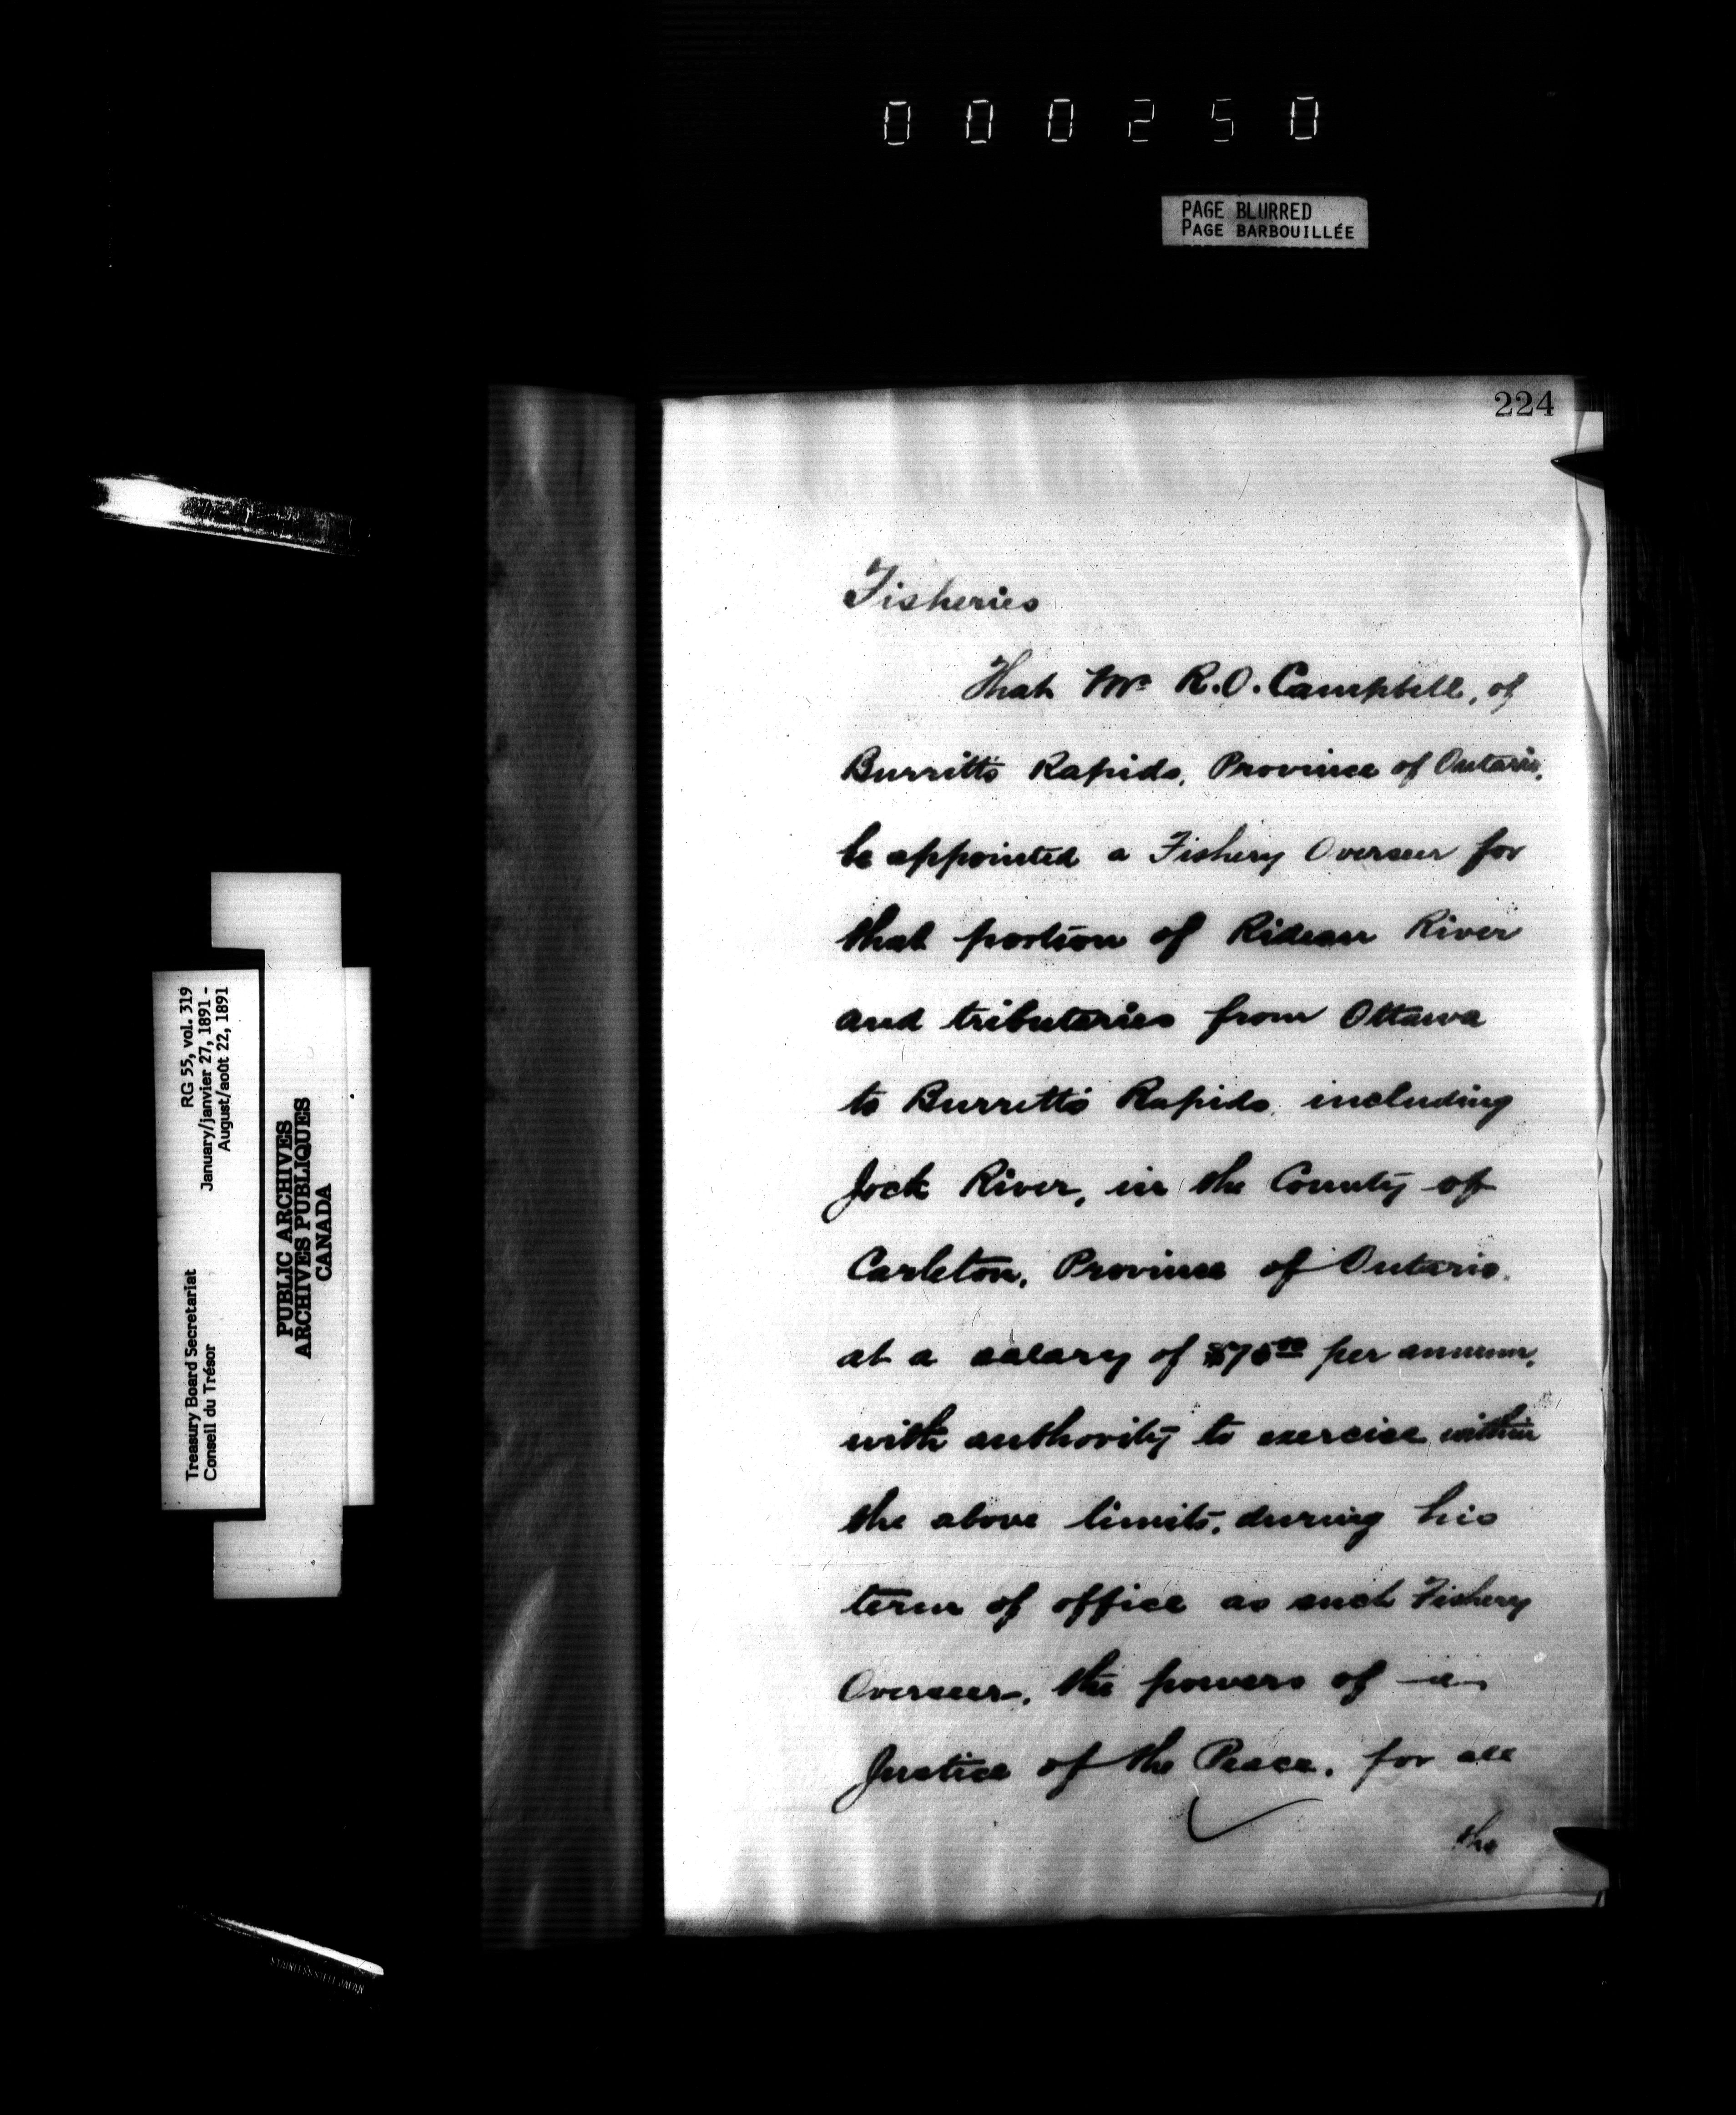 000250
PAGE BLURRED
PAGE BARBOUILLÉE
224
Fisheries
That Mr R.O. Campbell, of
Burritts Rapids, Province of Ontario,
be appointed a Fishery Overseer for
that portion of Rideau River
and tributaries from Ottawa
to Burritts Rapids, including
Jock River, in the County of
Carleton, Province of Ontario,
at a salary of $75.00 per annum,
with authority to exercise within
the above limits, during his
term of office as such Fishery
Overseer, the powers of a
Justice of the Peace, for all
the
RG 55, vol. 319
January/janvier 27, 1891 -
August/août 22, 1891
Treasury Board Secretariat
Conseil du Trésor
PUBLIC ARCHIVES
ARCHIVES PUBLIQUES
CANADA
STAINLESS STEEL JAPAN